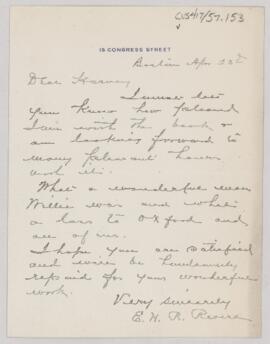 CUS417/57.153
15 CONGRESS STREET
Boston Apr 23d
Dear Harvey
I must let
you know how pleased
I am with the book &
am looking forward to
many pleasant hours
with it.
What a wonderful man
Willie was and what
a loss to Oxford and
all of us.
I hope you are satisfied
and will be handsomely
repaid for your wonderful
work.
Very sincerely
E. H. R. Revere